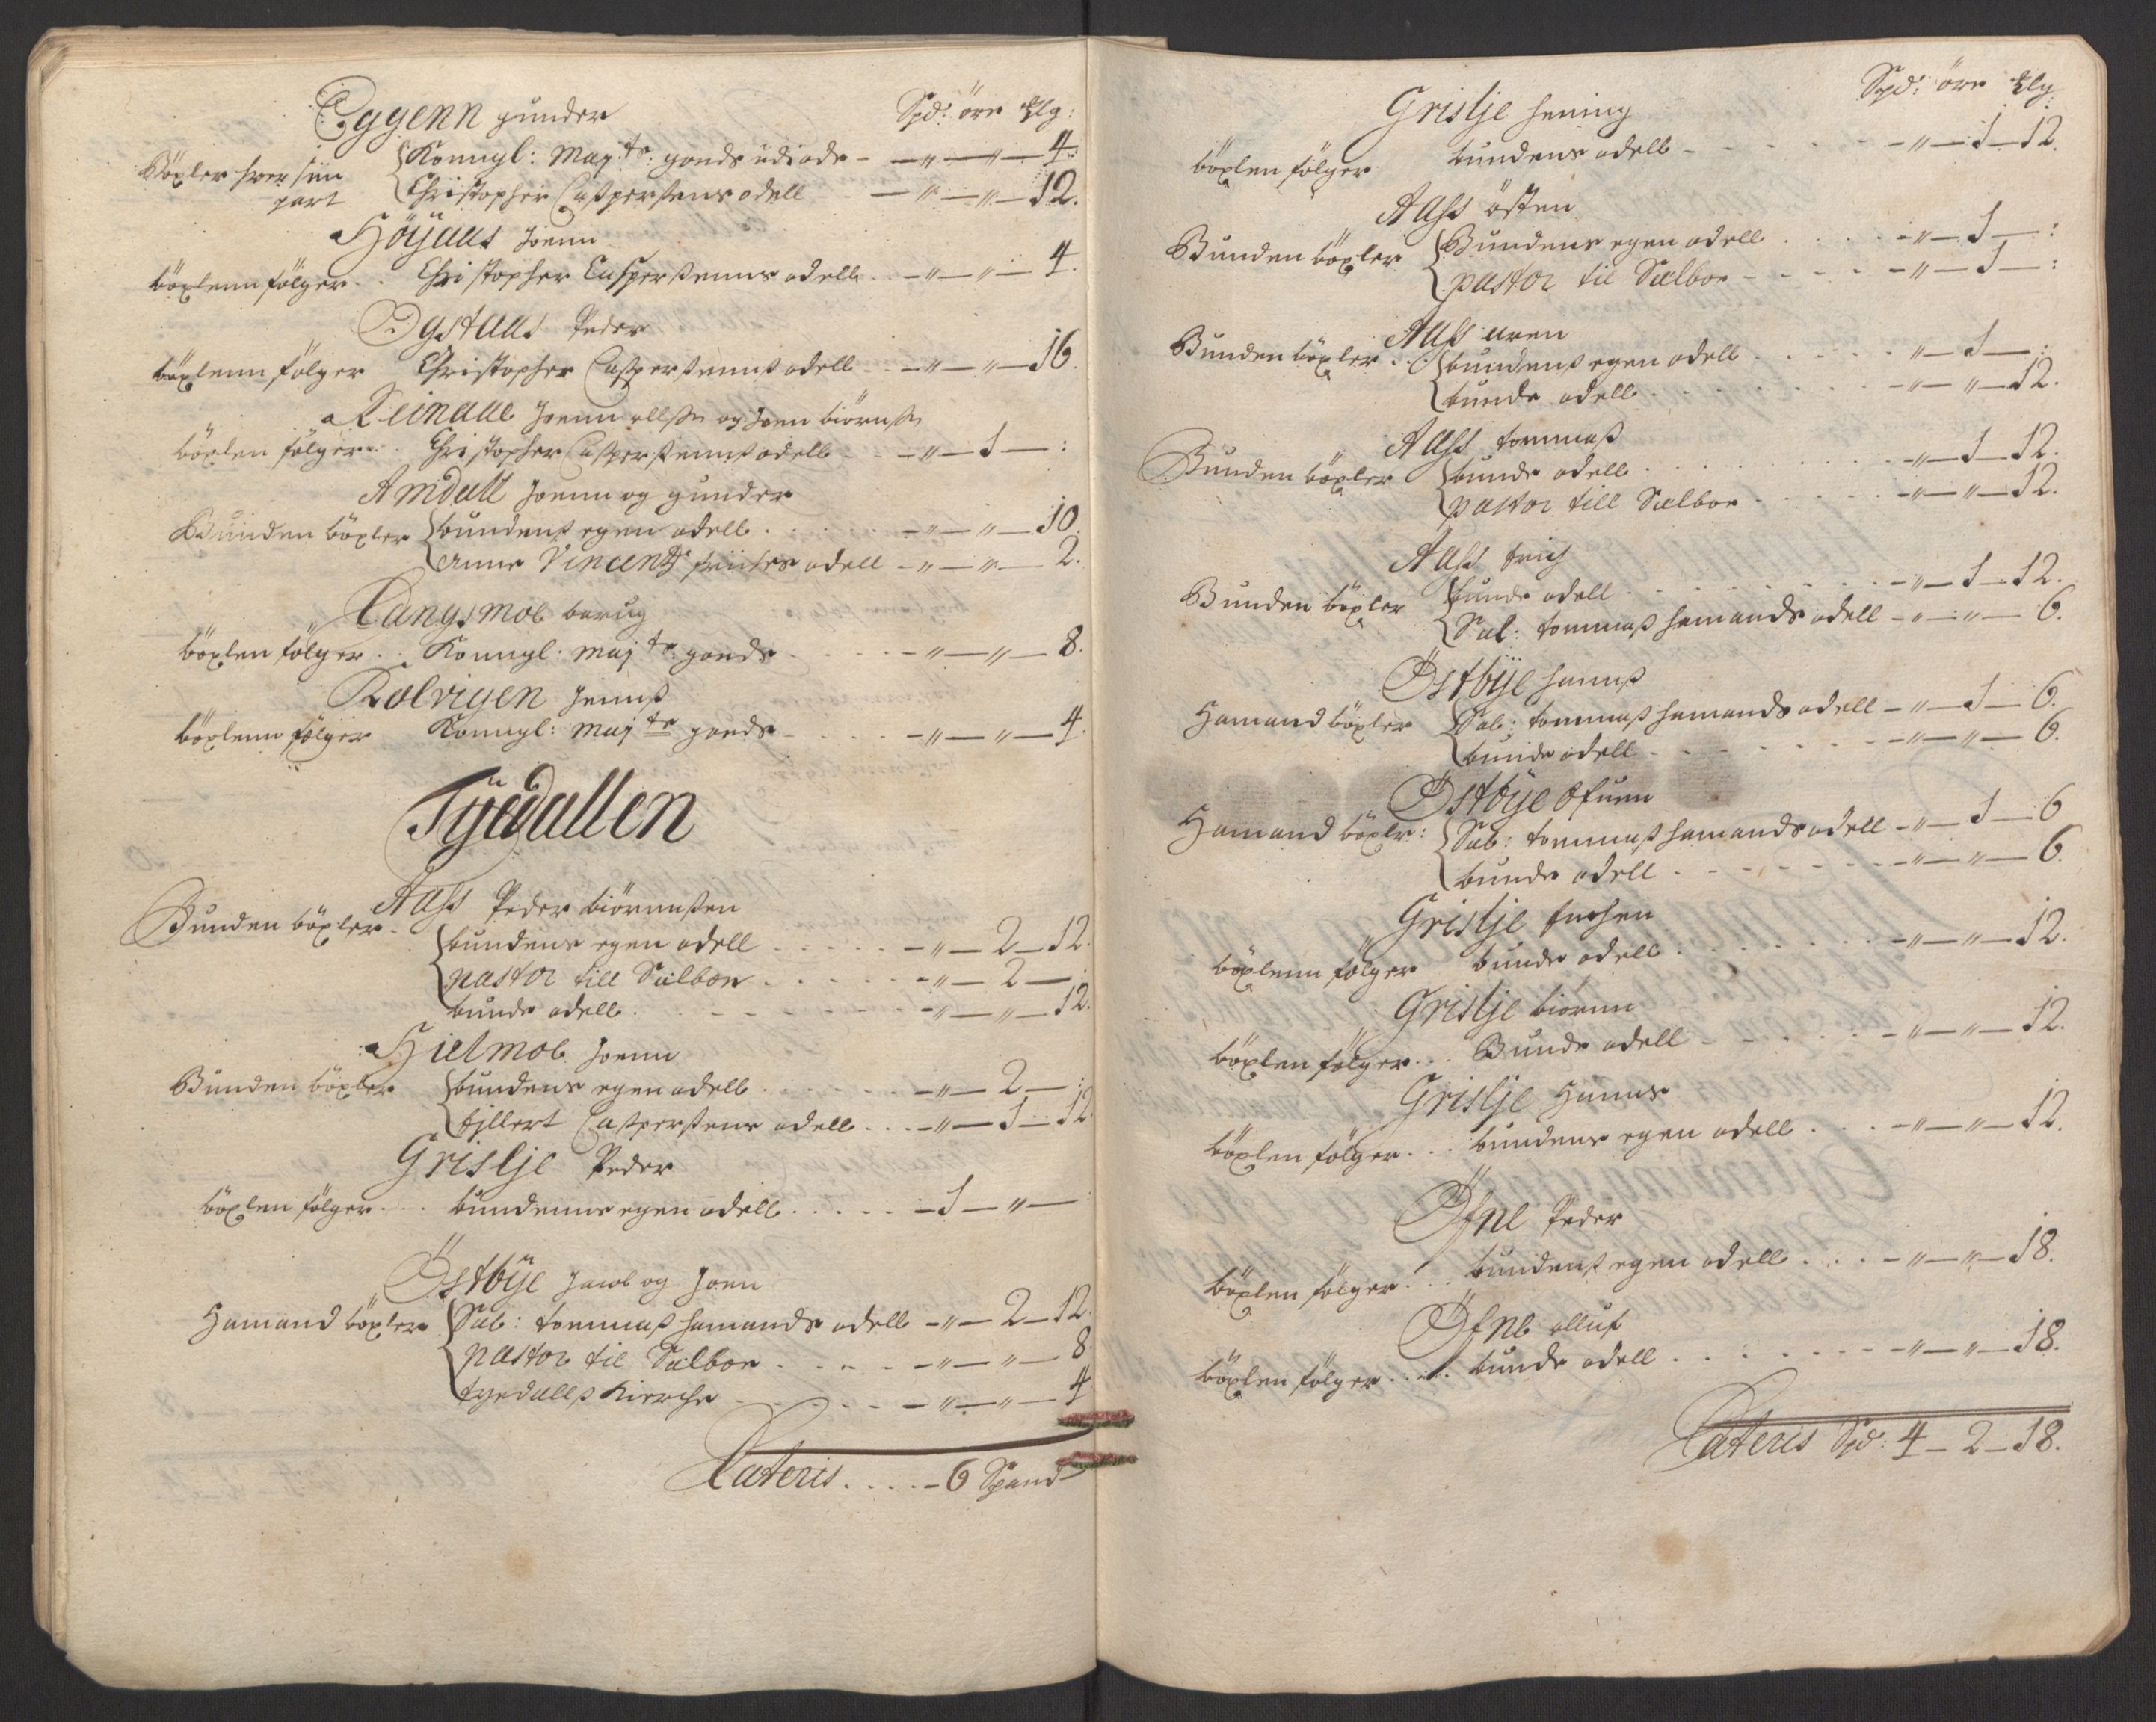 Eggenn gunder Spd: öre Mlg:
Böxler hver siin part
Konngl: May.ts: gonds üdi ode - - " - " - 4:
Christopher Caspersens odell - " - " - 12.
Höÿaas Joenn
böxlenn fölger . . Christopher Caspersenns odell . . - " - " - 4.
Ÿgstaas Peder
böxlenn fölger Christopher Caspersennß odell - - " - " - 16.
Reinaae Joenn ollßn og Joen biörnßn
böxlen fölger . . Christopher Caspersennß odell - - " - 1 - :
Amdall Joenn og gunder
Bunden böxler bundenß egen odell . . . . - " - " - 10.
Anne Vincentz friises odell - " - " - 2.
Langsmoe barug
böxlen fölger . . Konngl: maj ts: gonds - - - " - " - 8.
Rolvigen Jennß
böxlenn fölger Konngl: maj ts gonds - - - " - " - 4.
Tÿedallen
Aass Peder biörnnßen
Bunden böxler -
bundens egen odell - - - - - " - 2 - 12.
pastor till Sælboe . . . . - " - 2 - :
bunde odell . - - - - " - " - 12.
Hielmoe Joenn
Bunden böxler bundens egen odell . . . . - " - 2 - :
Ejllert Caspersens odell . . . - " - 1 - 12
Grislje Peder
böxlen fölger . . . bundenns egen odell . . . . . - 1 - " -
Östbÿe Jacob og Joen
Hamand böxler Sal: tommaß hamands odell - " - 2 - 12.
pastor til Sælboe . . . - - " - " - 8
tyedallß Kierche - - - - " - " - 4
Lateris . . . . - 6 Spand
Spd: öre Mlg
Grislje hening
böxlen fölger bundens odell - - - - - - " - 1 - 12.
Aass östen
Bunden böxler Bundens egen odell . . . . - " - 1 - :
pastor til Sælboe - - - - - " - 1 - :
Aass aren
Bunden böxler . . bundenß egen odell . . . . . " - 1 - :
bunde odell . . . . . . - " - " - 12.
Aass tommaß
Bunden böxler bunde odell . . . . . . - " - 1 - 12.
pastor till Sælboe - . . . . - " - " - 12.
Aass Erich
Bunden böxler bunde odell . . . . . . - " - 1 - 12.
Sal: tommaß hemands odell - " - " - 6.
Östbÿe hannß
Hamand böxler Sal: tommaß hemands odell - " - 1 - 6.
bunde odell - - - - - - " - " - 6.
Östbÿe Ofuen
Hamand böxlr: Sal: tommaß hamands odell - " - 1 - 6
bunde odell . - - - - - " - " - 6.
Grislje
böxlenn fölger bunde odell . . . . . - " - " - 12.
Grislje biörnn
böxlen fölger . . . Bunde odell - - . . . - " - " - 12.
Grislje Hanns
böxlen fölger . . . bundens egen odell . . . - " - " - 12.
Öfne Peder
böxlen fölger . . . bundenß egen odell . . . - " - " - 18.
Öfne olluf
böxlen fölger . . . . bunde odell . . . . . . - " - " - 18.
Lateris Spd: 4 - 2 - 18.